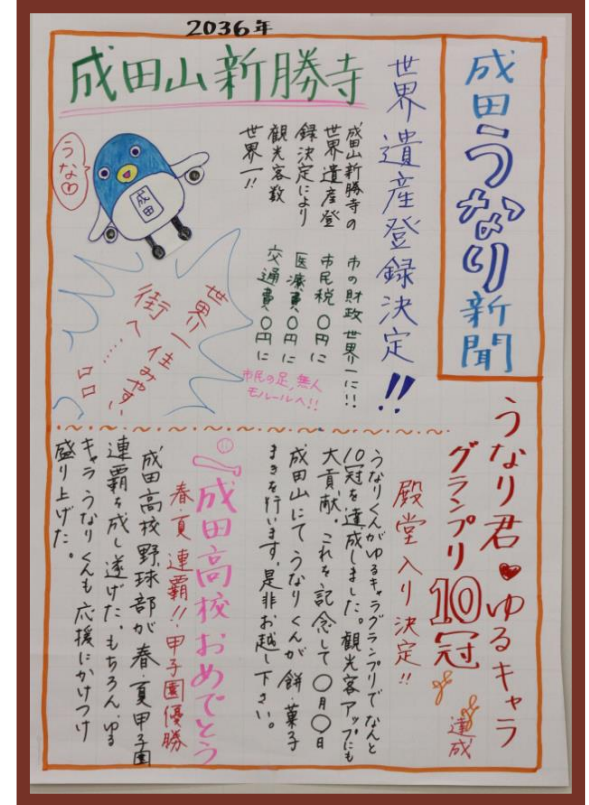 2036年
成田うなり新聞
成田山新勝寺
世界遺産登録決定!!
成田山新勝寺の
世界遺産登
録決定により
観光客数
世界一!!
市の財政世界一に!!
市民税〇円に
医療費〇円に
交通費〇円に
市民の足,無人
モノレールへ!!
うな♡
成田
世界一住みやすい
街へ……
うなり君♥ゆるキャラ
グランプリ10冠
達成
殿堂入り決定!!
うなりくんがゆるキャラグランプリでなんと
10冠を達成しました。観光客アップにも
大貢献。これを記念して〇月〇日
成田山にてうなりくんが餅・菓子
まきを行います。是非お越し下さい。
成田高校おめでとう
春・夏連覇!!・甲子園優勝
成田高校野球部が春・夏甲子園
連覇を成し遂げた。もちろん、ゆる
キャラうなりくんも応援にかけつけ
盛り上げた。